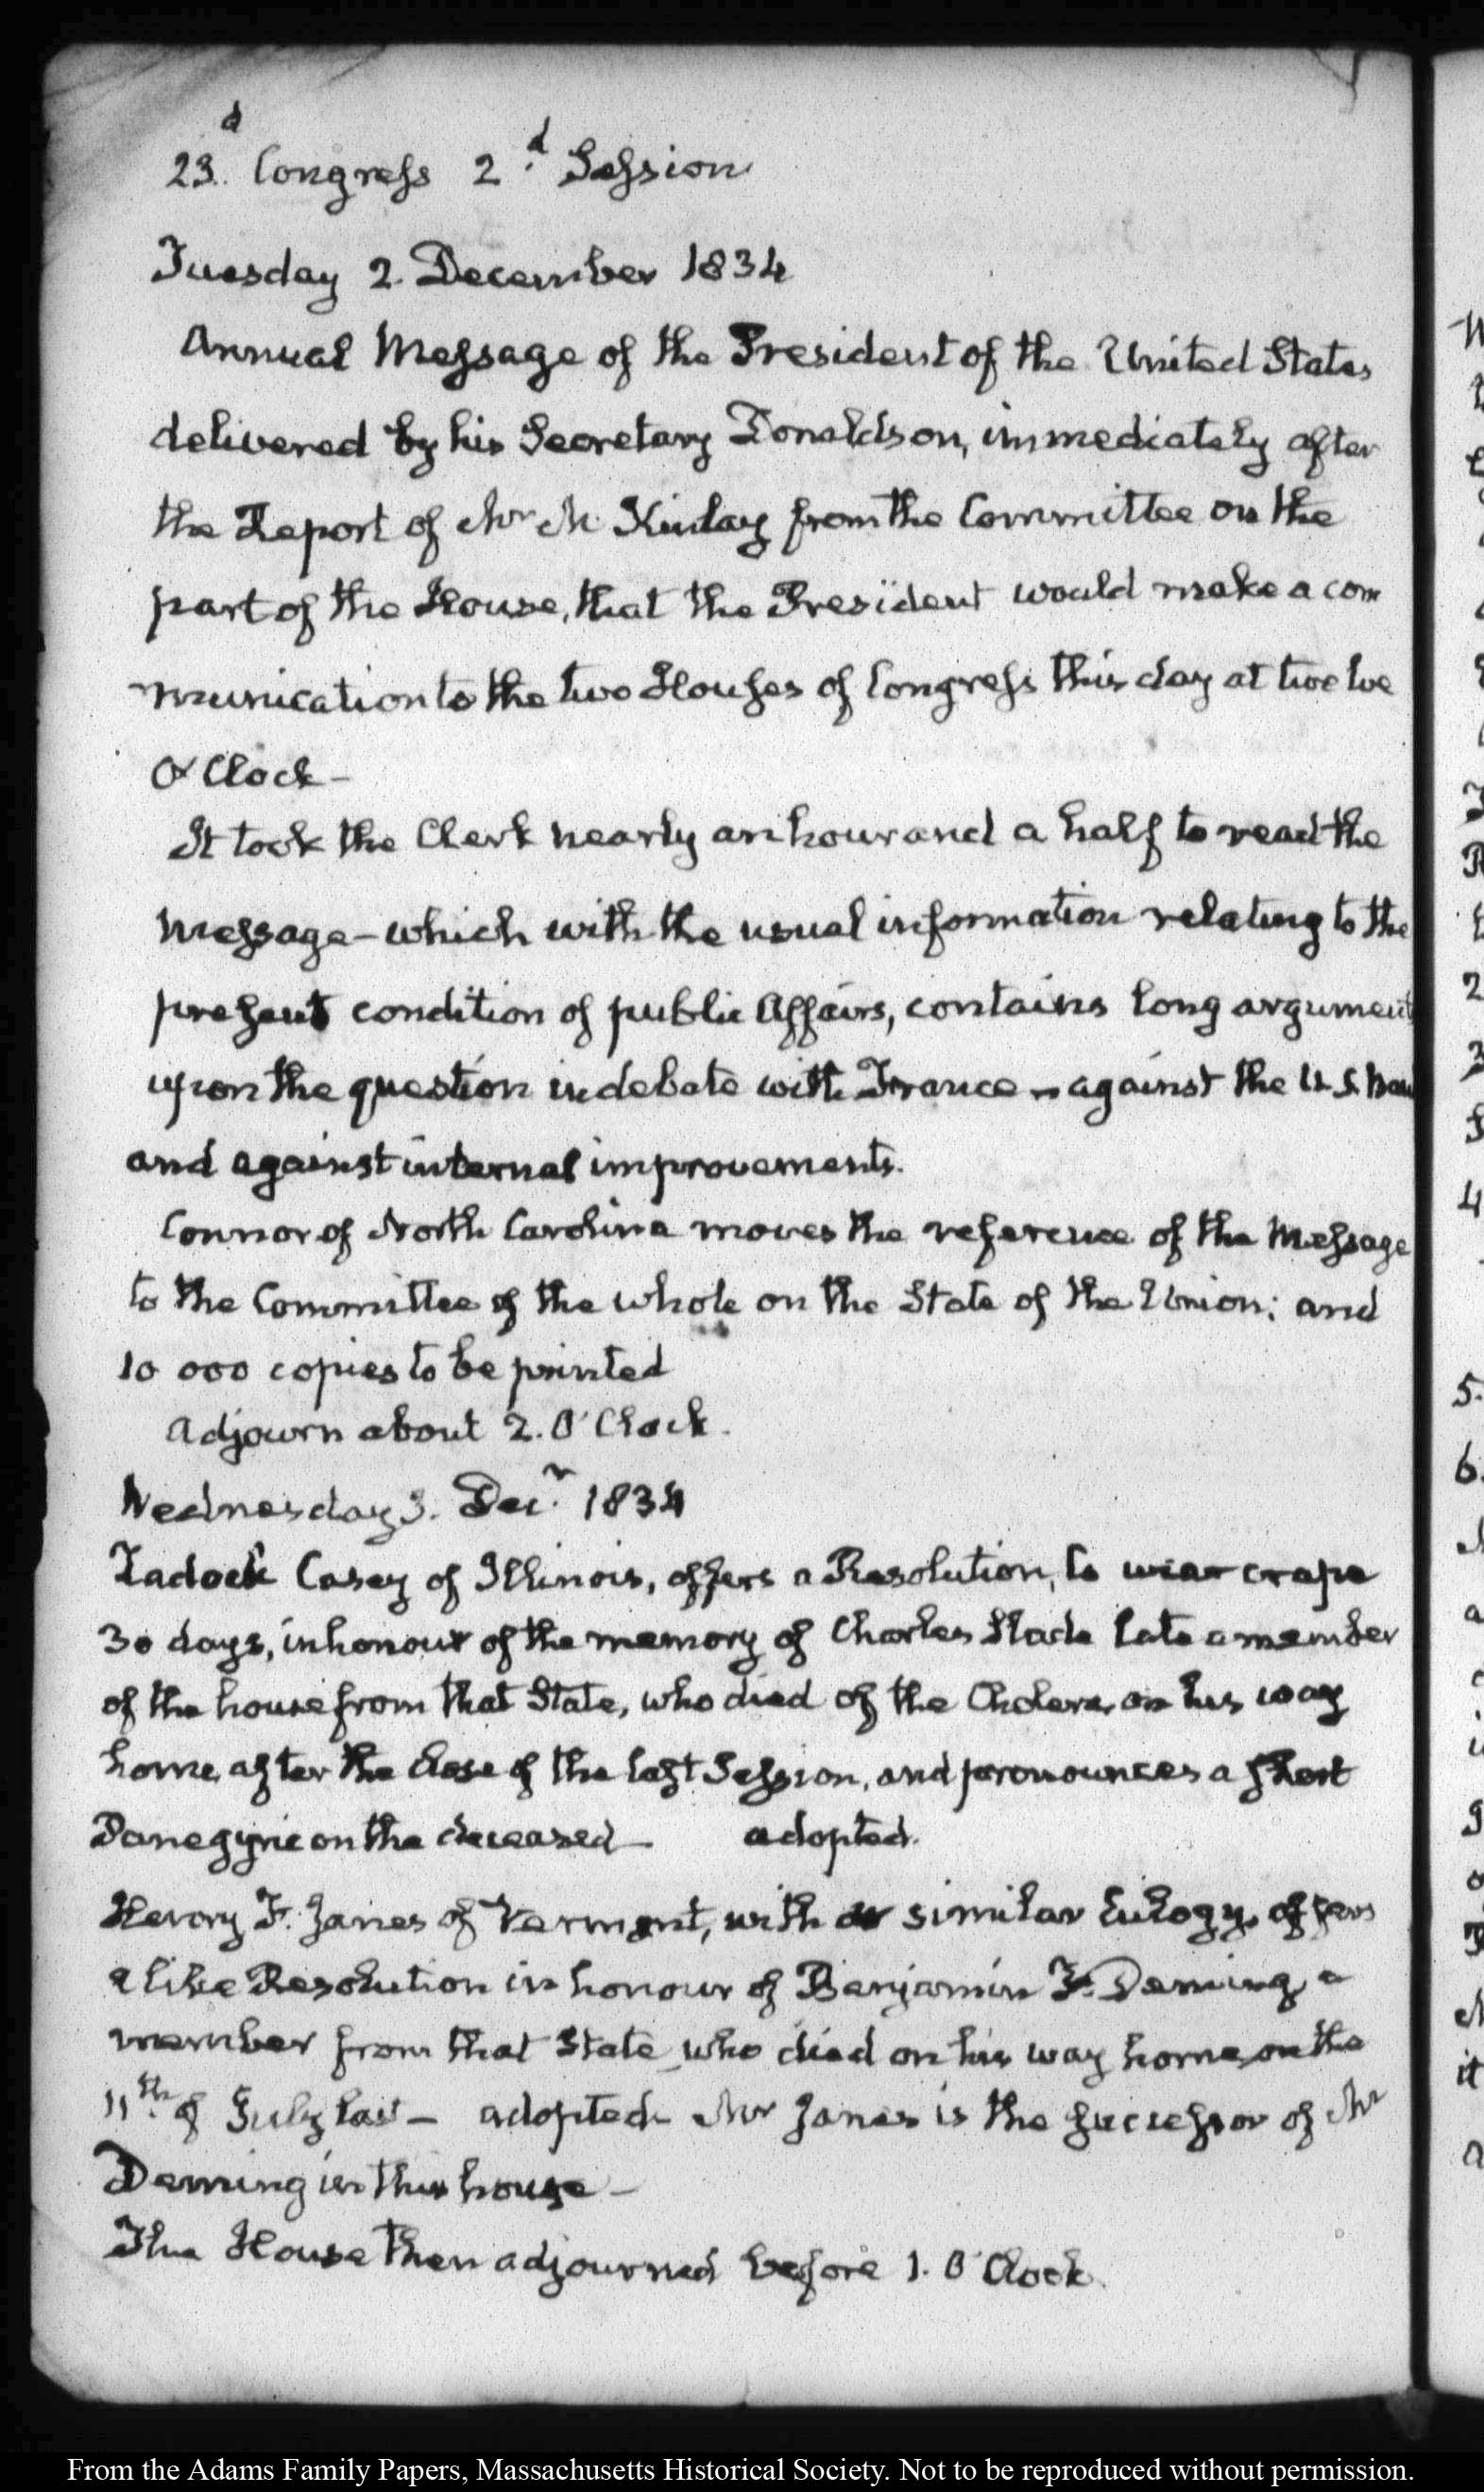 23.d Congress 2.d Session
Tuesday 2. December 1834
Annual Message of the President of the United States
delivered by his Secretary Donaldson, immediately after
the Report of Mr Mc Kinlay from the Committee on the
part of the House, that the President would make a com
munication to the two Houses of Congress this day at twelve
O'Clock—
It took the Clerk nearly an hour and a half to read the
Message—which with the usual information relating to the
present condition of public Affairs, contains long argument
upon the question in debate with France – against the U.S. Ban
and against internal improvements.
Connor of North Carolina moves the reference of the Message
to the Committee of the whole on the State of the Union; and
10 000 copies to be printed
Adjourn about 2. O'Clock.
Wednesday 3. Decr 1834
Zadock Casey of Illinois, offers a Resolution, to wear crape
30 days, in honour of the memory of Charles Slade late a member
of the house from that State, who died of the Cholera, on his way
home, after the close of the last Session, and pronounces a short
Panegyric on the deceased— adopted.
Henry F. Janes of Vermont, with a similar Eulogy, offers
a like Resolution in honour of Benjamin F. Deming, a
member from that State who died on his way home, on the
11th. of July last— adopted– Mr Janes is the successor of Mr
Deming in this house—
The House then adjourned before 1. O'Clock.
From the Adams Family Papers, Massachusetts Historical Society. Not to be reproduced without permission.